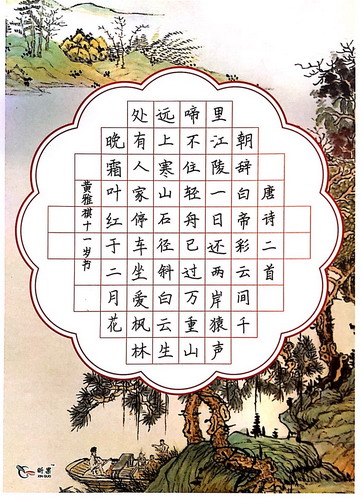 唐诗二首
朝辞白帝彩云间千
里江陵一日还两岸猿声
啼不住轻舟已过万重山
远上寒山石径斜白云生
处有人家停车坐爱枫林
晚霜叶红于二月花
黄雅祺十一岁书
昕果
XIN GUO